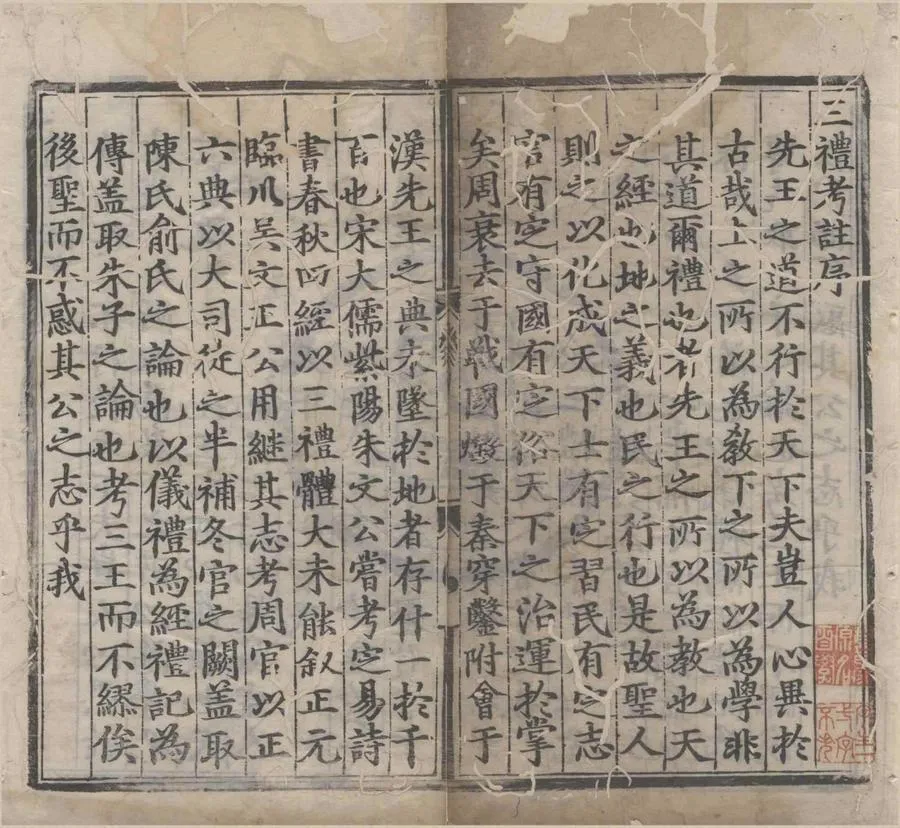 三禮考註序
先王之道不行於天下夫豈人心異於
古哉上之所以為教下之所以為學非
其道爾禮也者先王之所以為教也天
之經也地之義也民之行也是故聖人
則之以化成天下士有定習民有定志
官有定守國有定俗天下之治運於掌
矣周衰去于戰國燬于秦穿鑿附會于
漢先王之典未墜於地者存什一於千
百也宋大儒紫陽朱文公嘗考定易詩
書春秋四經以三禮體大未能叙正元
臨川吳文正公用継其志考周官以正
六典以大司徒之半補冬官之闕盖取
陳氏俞氏之論也以儀禮為經禮記為
傳盖取朱子之論也考三王而不繆俟
後聖而不惑其公之志乎我